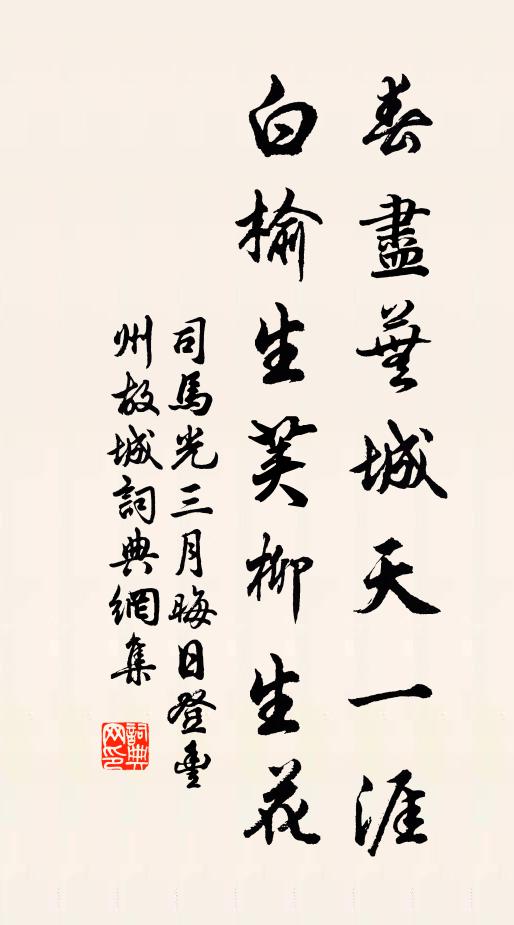 春盡蕪城天一涯
白榆生荚柳生花
司馬光三月晦日登豊
州故城詞典網集
詞典
网印